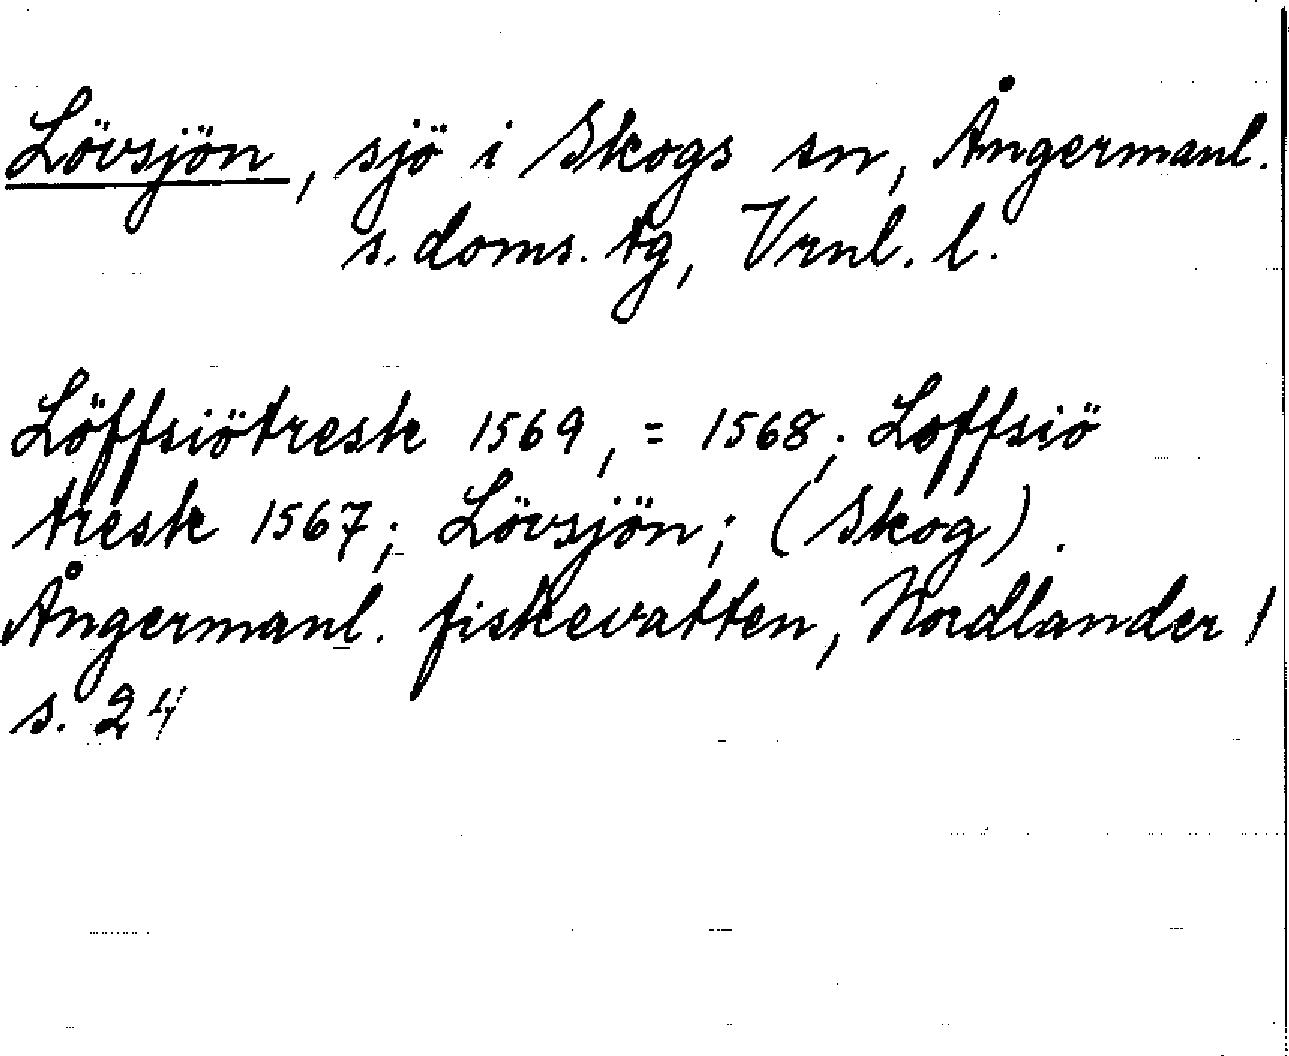 Lövsjön, sjö i Skogs sn, Ångermanl.
s. doms. tg, Vrnl. l.
Löffsiötresk 1569, = 1568; Loffsiö
tresk 1567; Lövsjön; (Skog).
Ångermanl. fiskevatten, Nordlander 1
s. 24